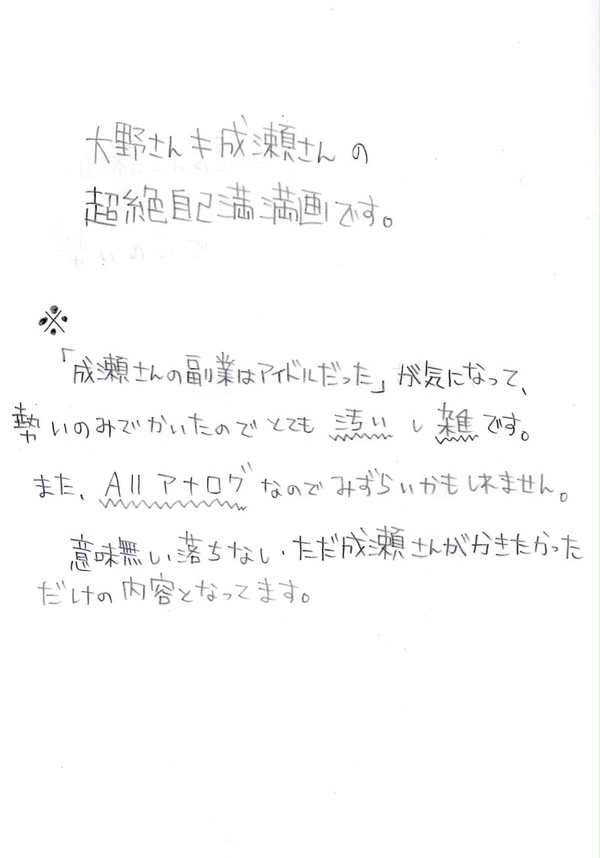 大野さんキ成瀬さんの
超絶自己満満画です。
※
「成瀬さんの副業はアイドルだった」が気になって、
勢いのみでかいたのでとても汚いし雑です。
また、Allアナログなのでみずらいかもしれません。
意味無い落ちない・ただ成瀬さんがかきたかった
だけの内容となってます。